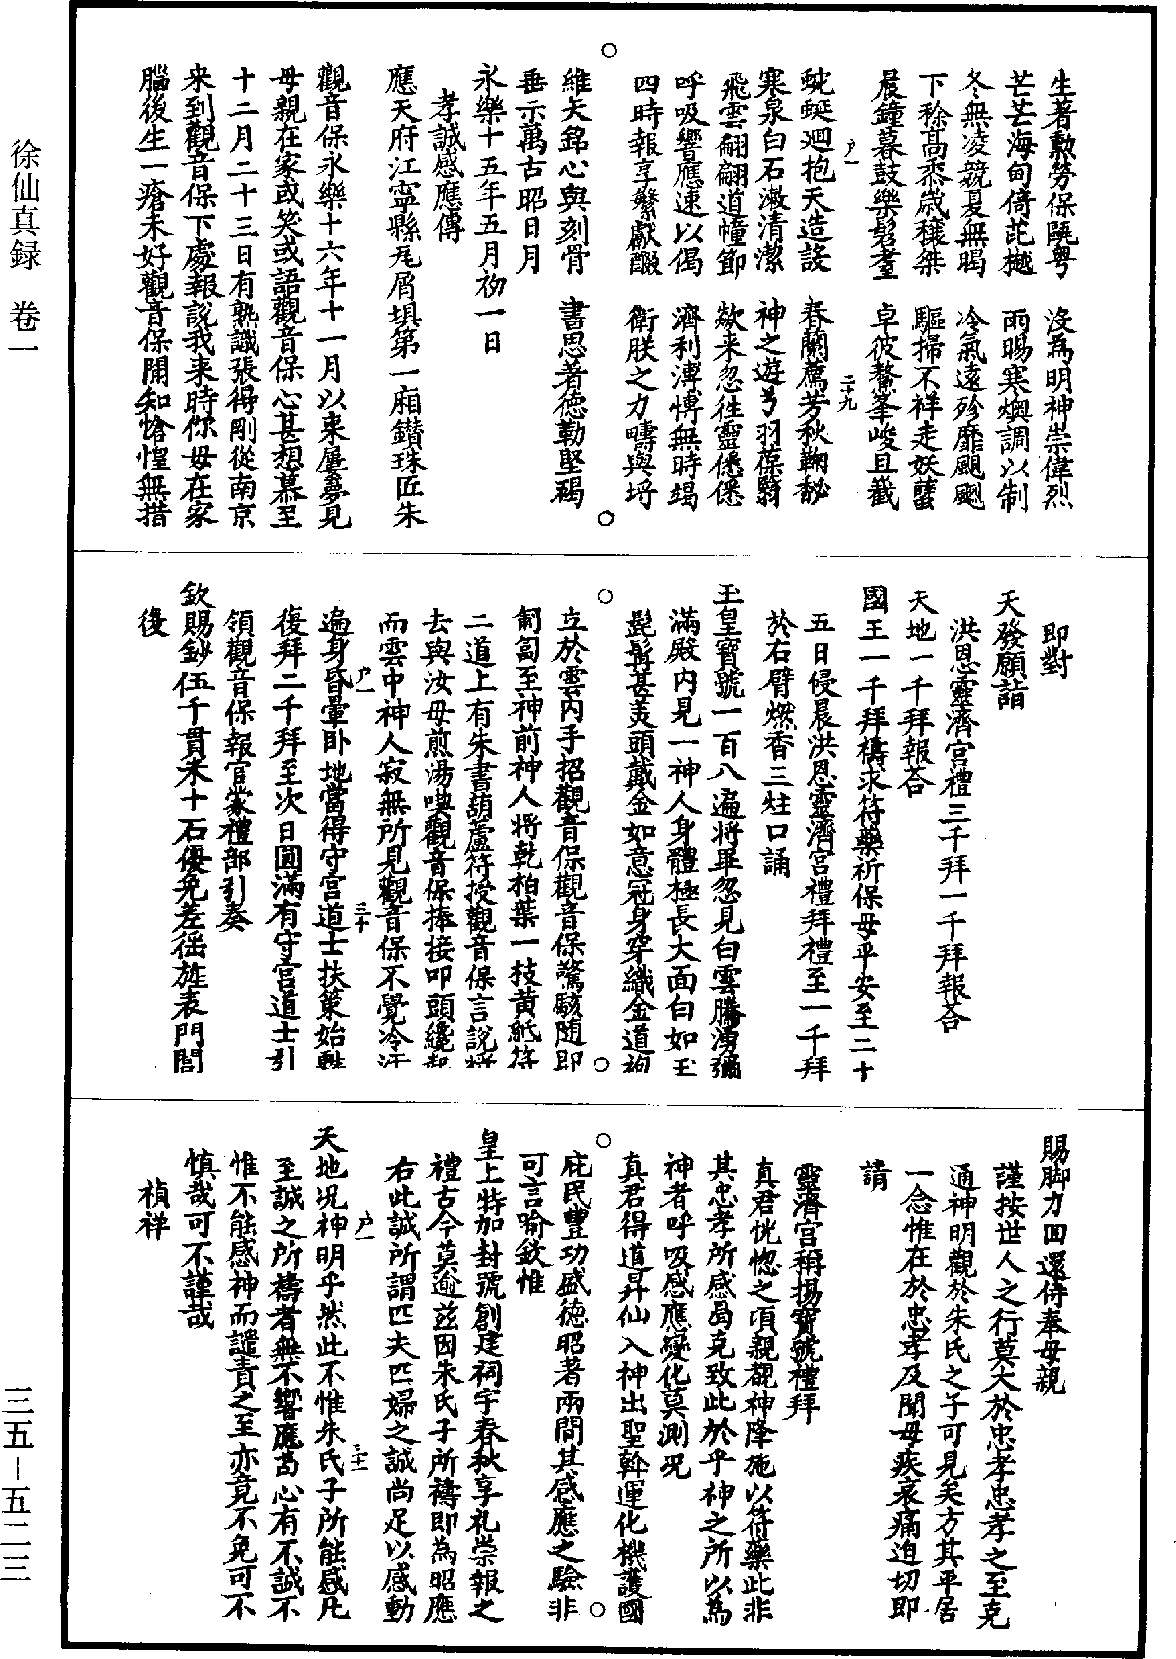 徐仙真録　卷一
生著勲勞保陬粤　沒爲明神崇偉烈
芒芒海甸倚茈樾　雨暘寒燠調以制
冬無凌兢夏無暍　冷氣遠殄靡颶颲
下稌高黍歲穰桀　驅掃不祥走妖孽
晨鐘暮鼓樂髫耋　卓彼鰲峯峻且巀
蜿蜒迴抱天造設　春蘭薦芳秋鞠馝
寒泉白石漱清潔　神之遊兮羽葆翳
飛雲翩翩道幢節　欻来忽徃靈僁僁
呼吸響應速以偈　濟利溥愽無時竭
四時報享繁獻醊　衛朕之力疇與埒
維矢銘心與刻骨　書思著徳勒堅碣
垂示萬古昭日月
永樂十五年五月初一日
孝誠感應傳
應天府江寧縣瓦屑埧第一廂鑽珠匠朱
觀音保永樂十六年十一月以来屢夢見
母親在家或笑或語觀音保心甚想慕至
十二月二十三日有熟識張得剛從南京
来到觀音保下處報說我来時你母在家
腦後生一瘡未好觀音保聞知愴惶無措
即對
天發願詣
洪恩靈濟宫禮三千拜一千拜報荅
天地一千拜報荅
國王一千拜禱求符藥祈保母平安至二十
五日侵晨洪恩靈濟宫禮拜禮至一千拜
於右臂燃香三炷口誦
玉皇寶號一百八遍將畢忽見白雲騰湧彌
滿殿内見一神人身體極長大面白如玉
髭髯甚美頭戴金如意冠身穿織金道袍
立於雲内手招觀音保觀音保驚駭随即
匍匐至神前神人將乾柏葉一枝黄紙符
二道上有朱書葫蘆符授觀音保言說將
去與汝母煎湯喫觀音保捧接叩頭纔起
而雲中神人寂無所見觀音保不覺冷汗
遍身昏暈卧地當得守宫道士扶策始甦
復拜二千拜至次日圓滿有守宫道士引
領觀音保報官蒙禮部引奏
欽賜鈔伍千貫米十石優免差徭旌表門閭
後
賜脚力回還侍奉母親
謹按世人之行莫大於忠孝忠孝之至克
通神明觀於朱氏之子可見矣方其平居
一念惟在於忠孝及聞母疾哀痛迫切即
請
靈濟宫稱揚寶號禮拜
真君恍惚之頃親覩神降施以符藥此非
其忠孝所感曷克致此於乎神之所以為
神者呼吸感應變化莫測况
真君得道昇仙入神出聖斡運化機護國
庇民豐功盛徳昭著兩間其感應之驗非
可言喻欽惟
皇上特加封號創建祠宇春秋享礼崇報之
禮古今莫逾兹因朱氏子所禱即為昭應
右此誠所謂匹夫匹婦之誠尚足以感動
天地况神明乎然此不惟朱氏子所能感凡
至誠之所禱者無不響應苟心有不誠不
惟不能感神而譴責之至亦竟不免可不
慎哉可不謹哉
禎祥
三五－五二三